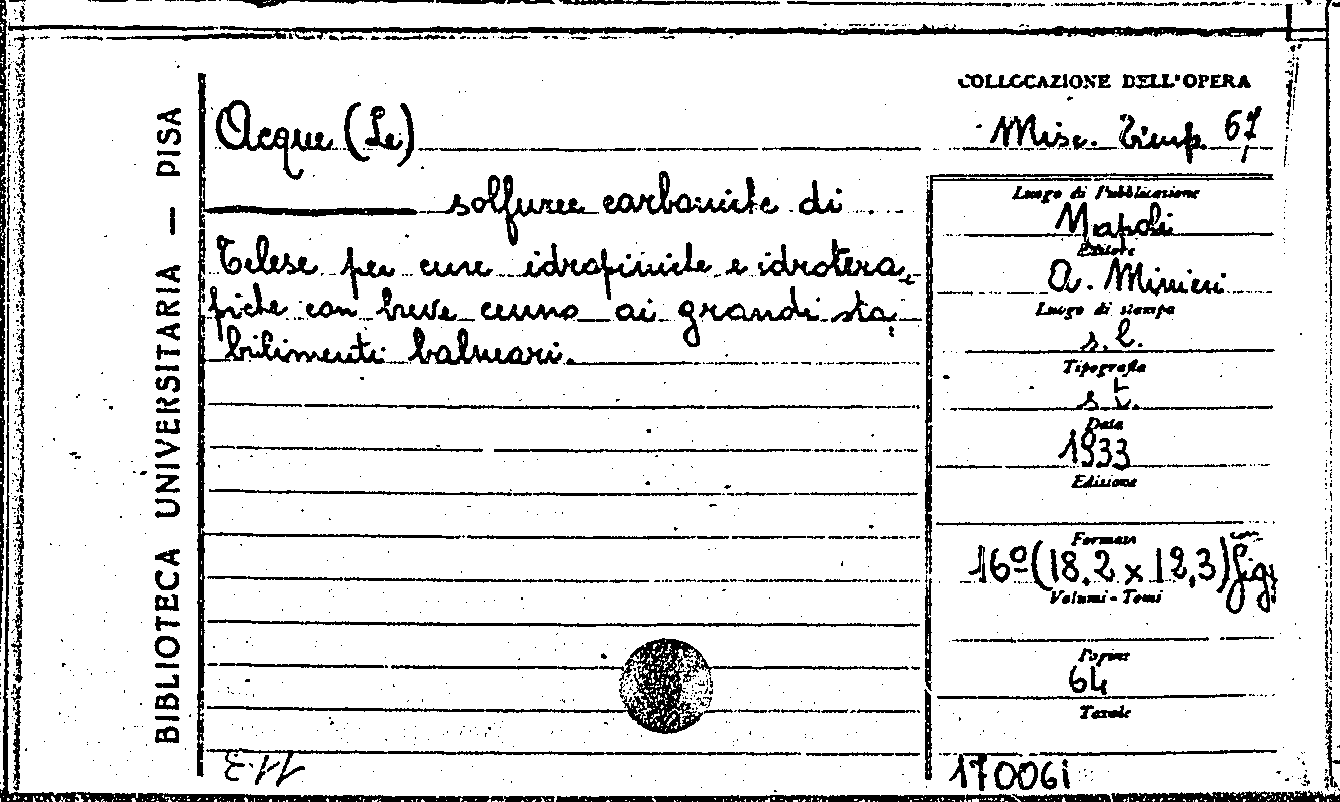 BIBLIOTECA UNIVERSITARIA — PISA
Acque (Le)
solfuree carboniche di
Telese per cure idropiniche e idrotera
piche con breve cenno ai grandi sta
bilimenti balneari.
COLLOCAZIONE DELL'OPERA
Misc. Timp. 67
Luogo di Pubblicazione
Napoli
Editore
A. Minieri
Luogo di stampa
s. l.
Tipografia
s t.
Data
1933
Edizione
Formato
16º (18,2 x 12,3) con fig.
Volumi - Tomi
Pagine
64
Tavole
170061